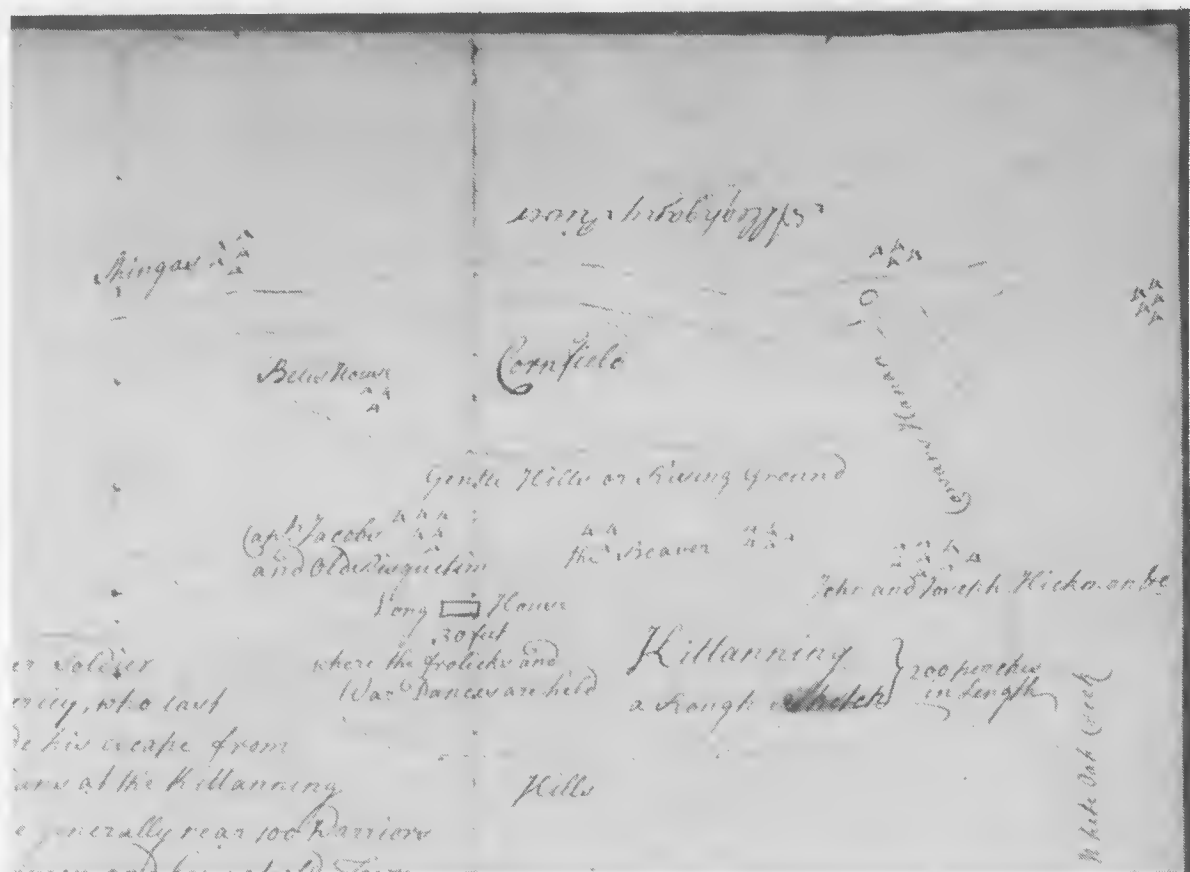 Allegheny River
Shingas
Cornfield
Gentle Hills or Rising Ground
Capt. Jacobs
and Old
the Beaver
John and Joseph Hickman &c
Long House
30 feet
where the frolicks and
War Dances are held
Kittanning
a Rough Sketch
200 perches
in Length
White Oak Creek
er Soldier
who last
his escape from
at the Kittanning
generally near 100 Warriors
Hills